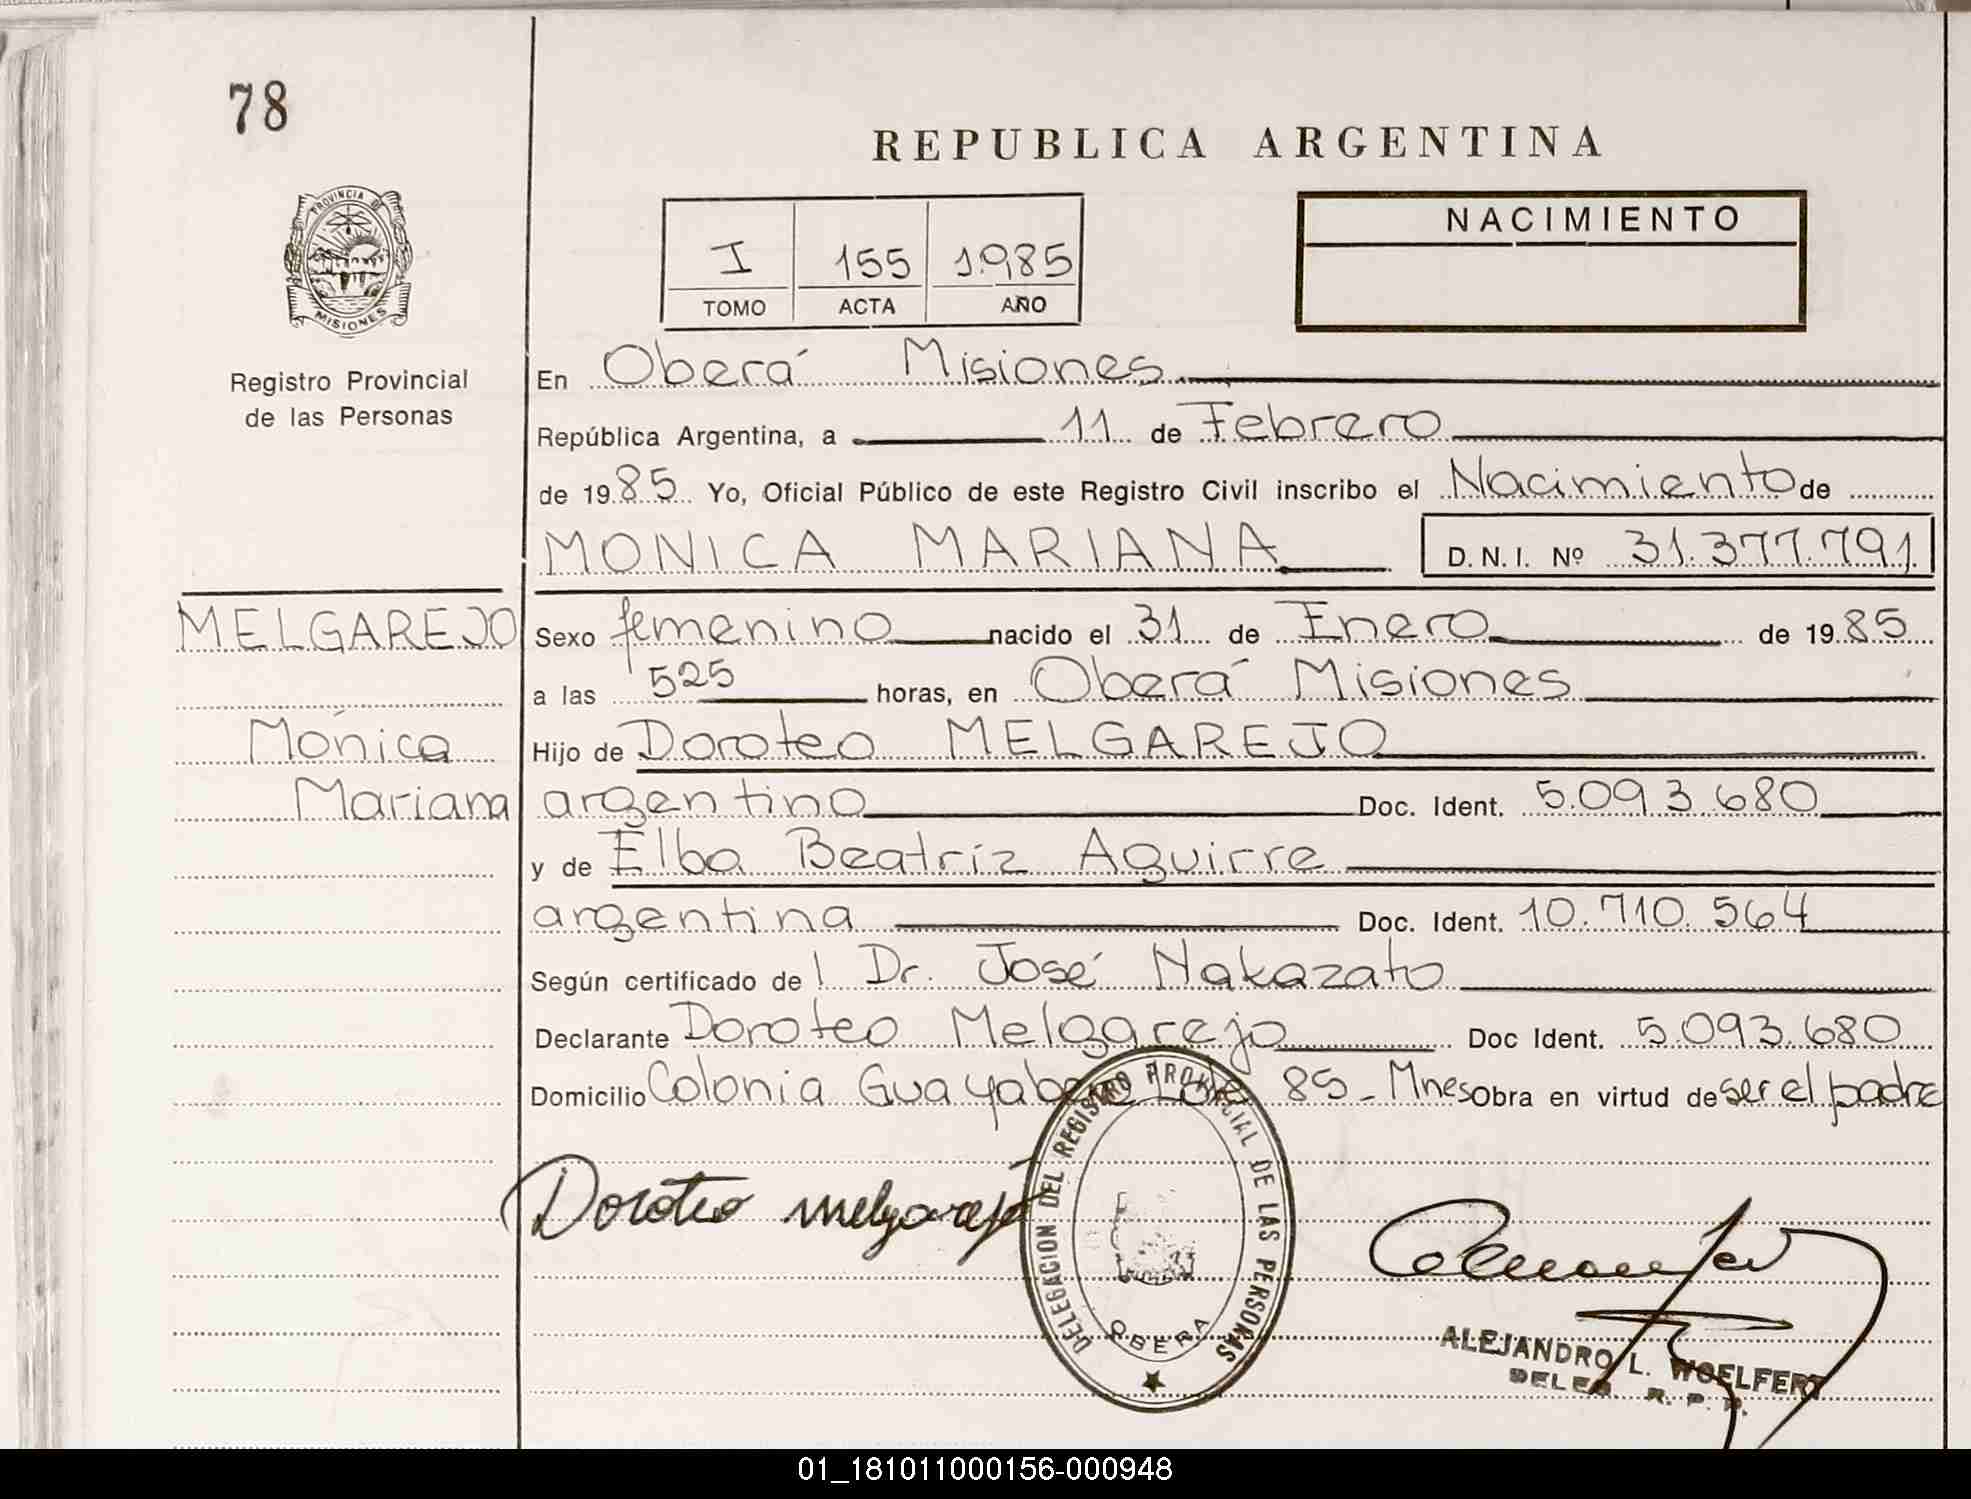 78
REPUBLICA ARGENTINA
PROVINCIA DE
MISIONES
NACIMIENTO
I 155 1.985
TOMO ACTA AÑO
Registro Provincial
de las Personas
En Oberá Misiones
República Argentina, a 11 de Febrero
de 1985 Yo, Oficial Público de este Registro Civil inscribo el Nacimiento de
MONICA MARIANA D.N.I. Nº 31.377.791
MELGAREJO
Mónica
Mariana
Sexo femenino nacido el 31 de Enero de 1985
a las 525 horas, en Oberá Misiones
Hijo de Doroteo MELGAREJO
argentino Doc. Ident. 5.093.680
y de Elba Beatríz Aguirre
argentina Doc. Ident. 10.710.564
Según certificado del Dr. José Nakazato
Declarante Doroteo Melgarejo Doc Ident. 5.093.680
Domicilio Colonia Guayabera Lote 85 - Mnes Obra en virtud de ser el padre
Doroteo Melgarejo
DELEGACION DEL REGISTRO PROVINCIAL DE LAS PERSONAS
OBERA
ALEJANDRO L. WOELFERT
DELEG. R. P. P.
01_181011000156-000948